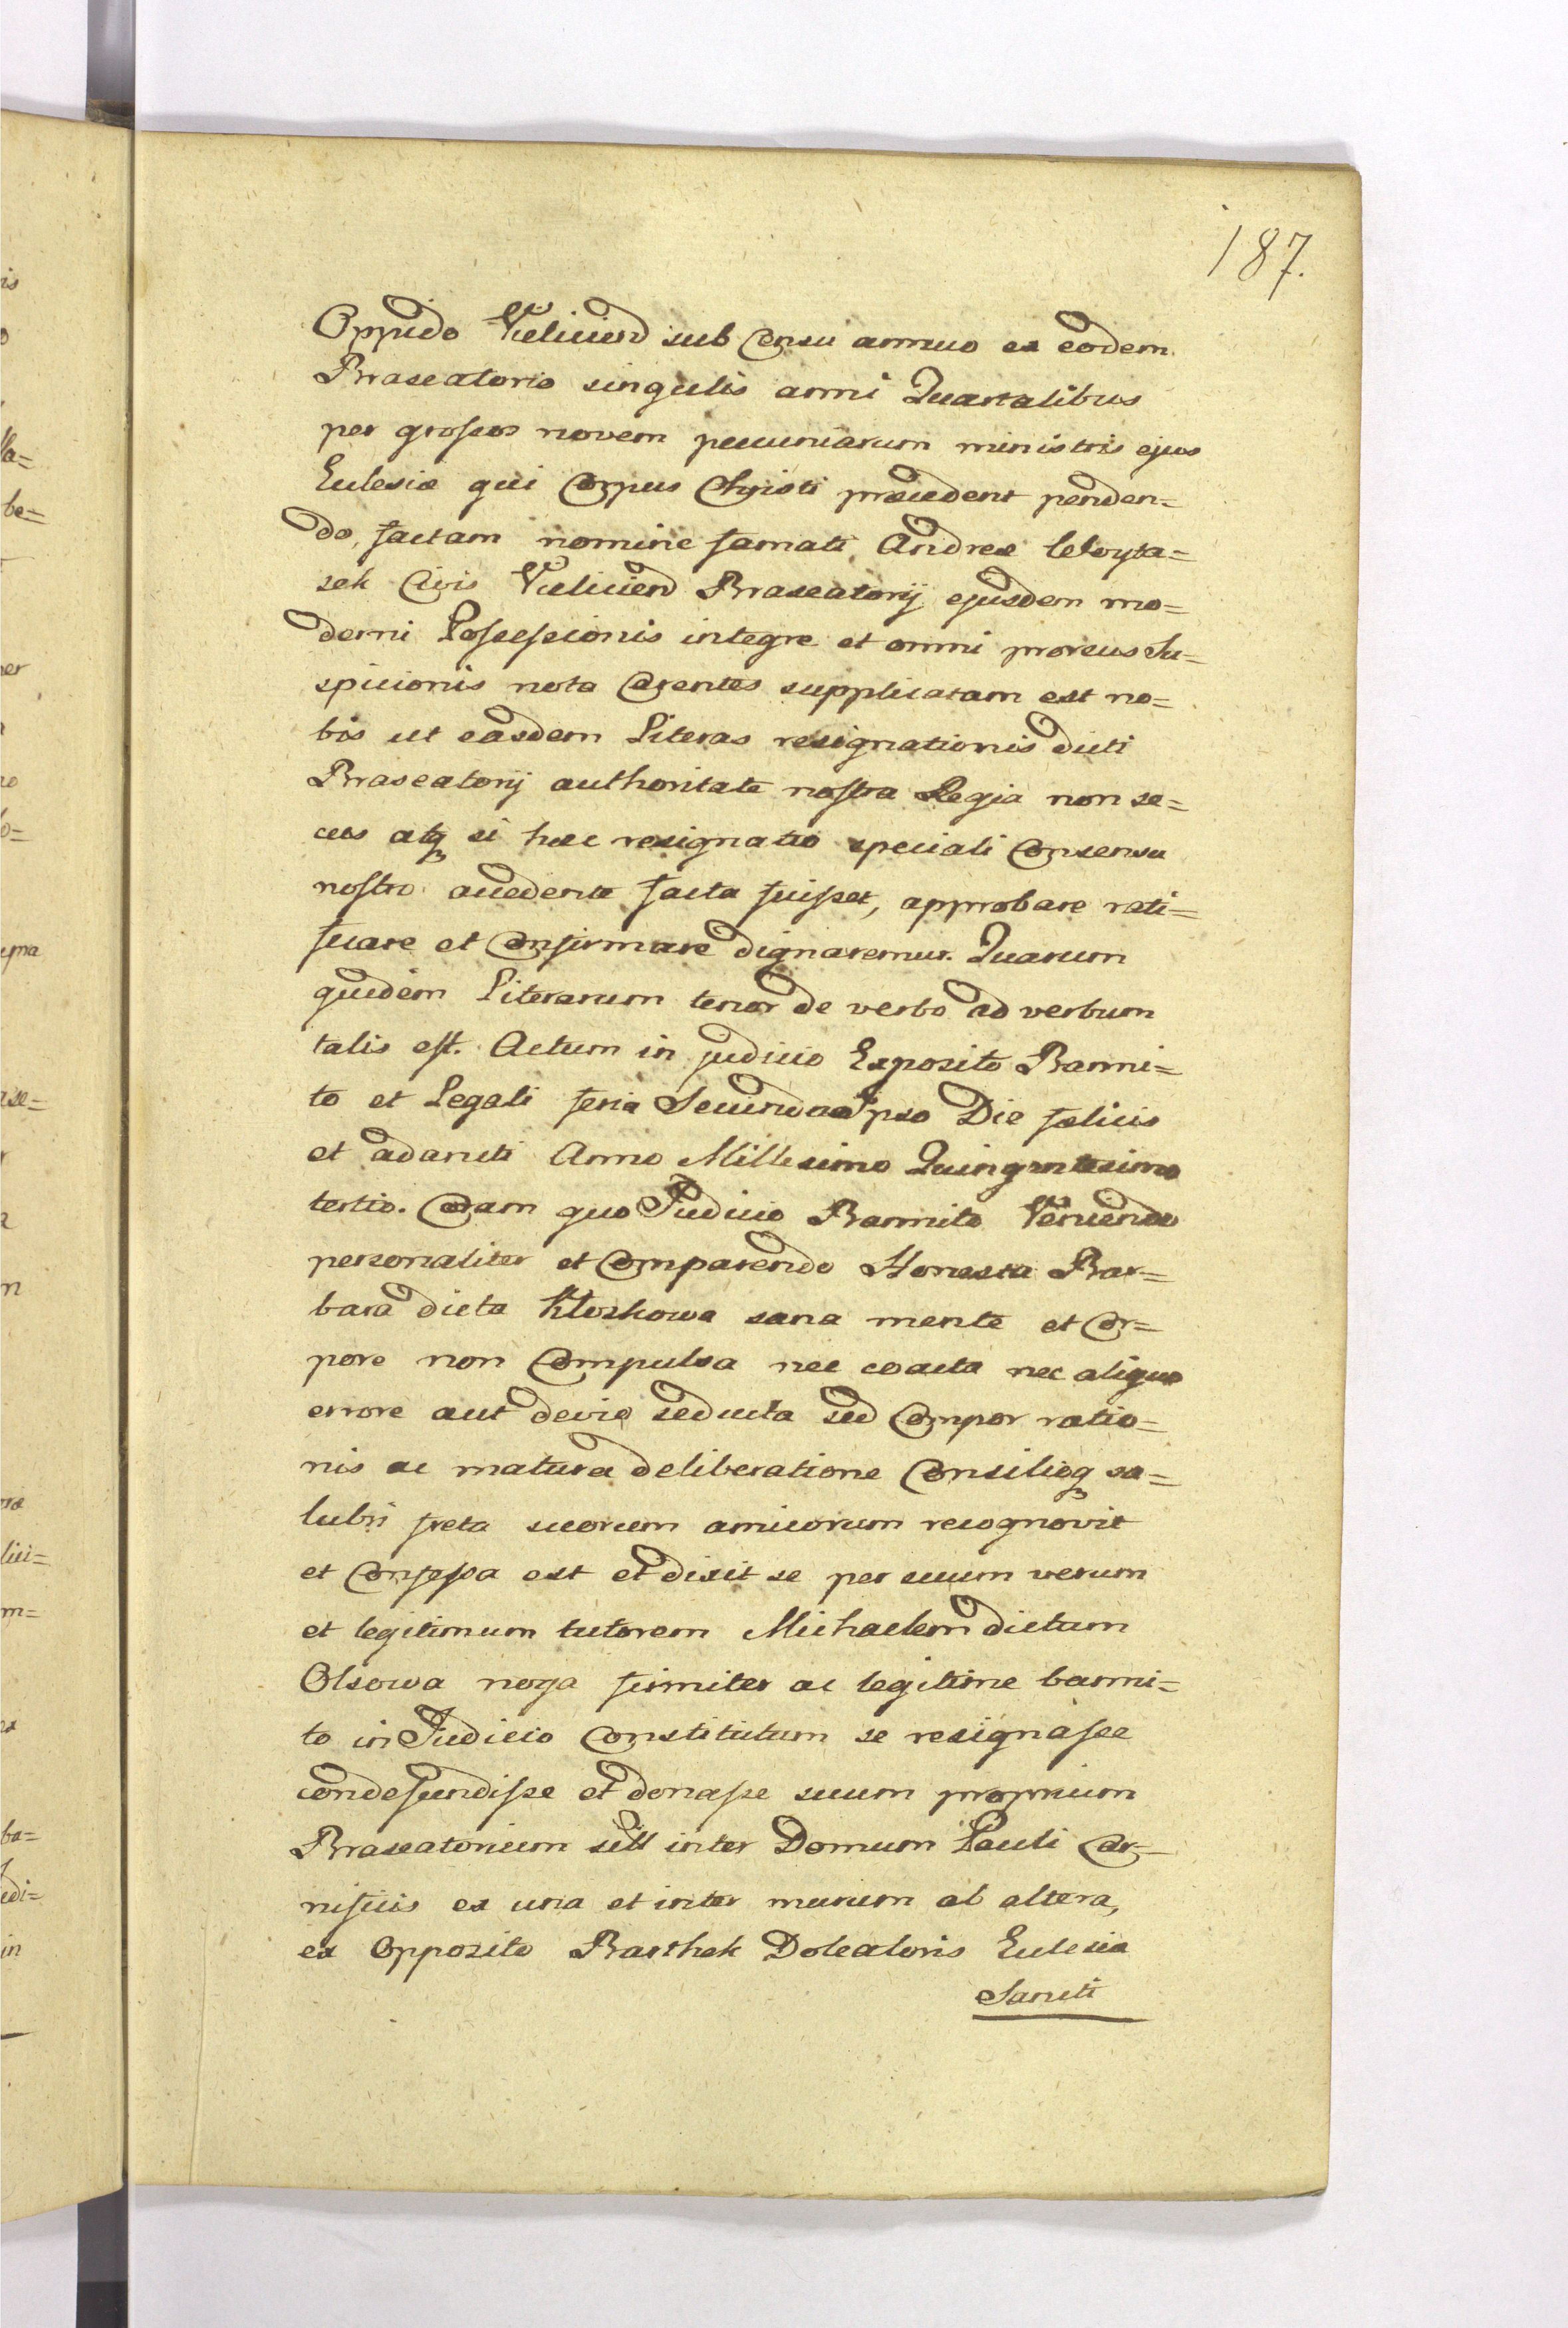 187.
Oppido Vieliciend sub Censu annuo ex eodem
Braxeatorio singulis anni Quartalibus
per grossos novem pecuniarum ministris ejus
Eclesiæ qui Corpus Christi præcedent penden=
do, factam nomine famati Andreæ Woyta=
sek Civis Vieliciend Braxeatorij ejusdem mo=
derni Possessionis integre et omni prorsus Su=
spicionis nota Carentes supplicatam est no=
bis ut easdem Literas resignationis dicti
Braxeatorij authoritate nostra Regia non se=
cus atq si hæc resignatio speciali Consensu
nostro accedente facta fuisset, approbare rati=
ficare et Confirmare dignaremur. Quarum
quidem Literarum tenor de verbo ad verbum
talis est. Actum in judicio Exposito Banni=
to et Legali feria Secunda Ipso Die fælicis
et adaucti Anno Millesimo Quingentesimo
tertio. Coram quo Judicio Bannito Veniendo
personaliter et Comparendo Honesta Bar=
bara dicta Kloskowa sana mente et Cor=
pore non Compulsa nec coacta nec aliquo
errore aut devio seducta sed Compor ratio=
nis ac matura deliberatione Consilioq sa=
lubri freta suorum amicorum recognovit
et Confessa est et dixit se per suum verum
et legitimum tutorem Michaelem dictum
Olsowa noga firmiter ac legitime banni=
to in Judicio Constitutum se resignasse
condescendisse et donasse suum proprium
Braxeatorium sitt inter Domum Pauli Car=
nificis ex una et inter murum ab altera,
ex Opposito Barthek Doleatoris Eclesia
Sancti